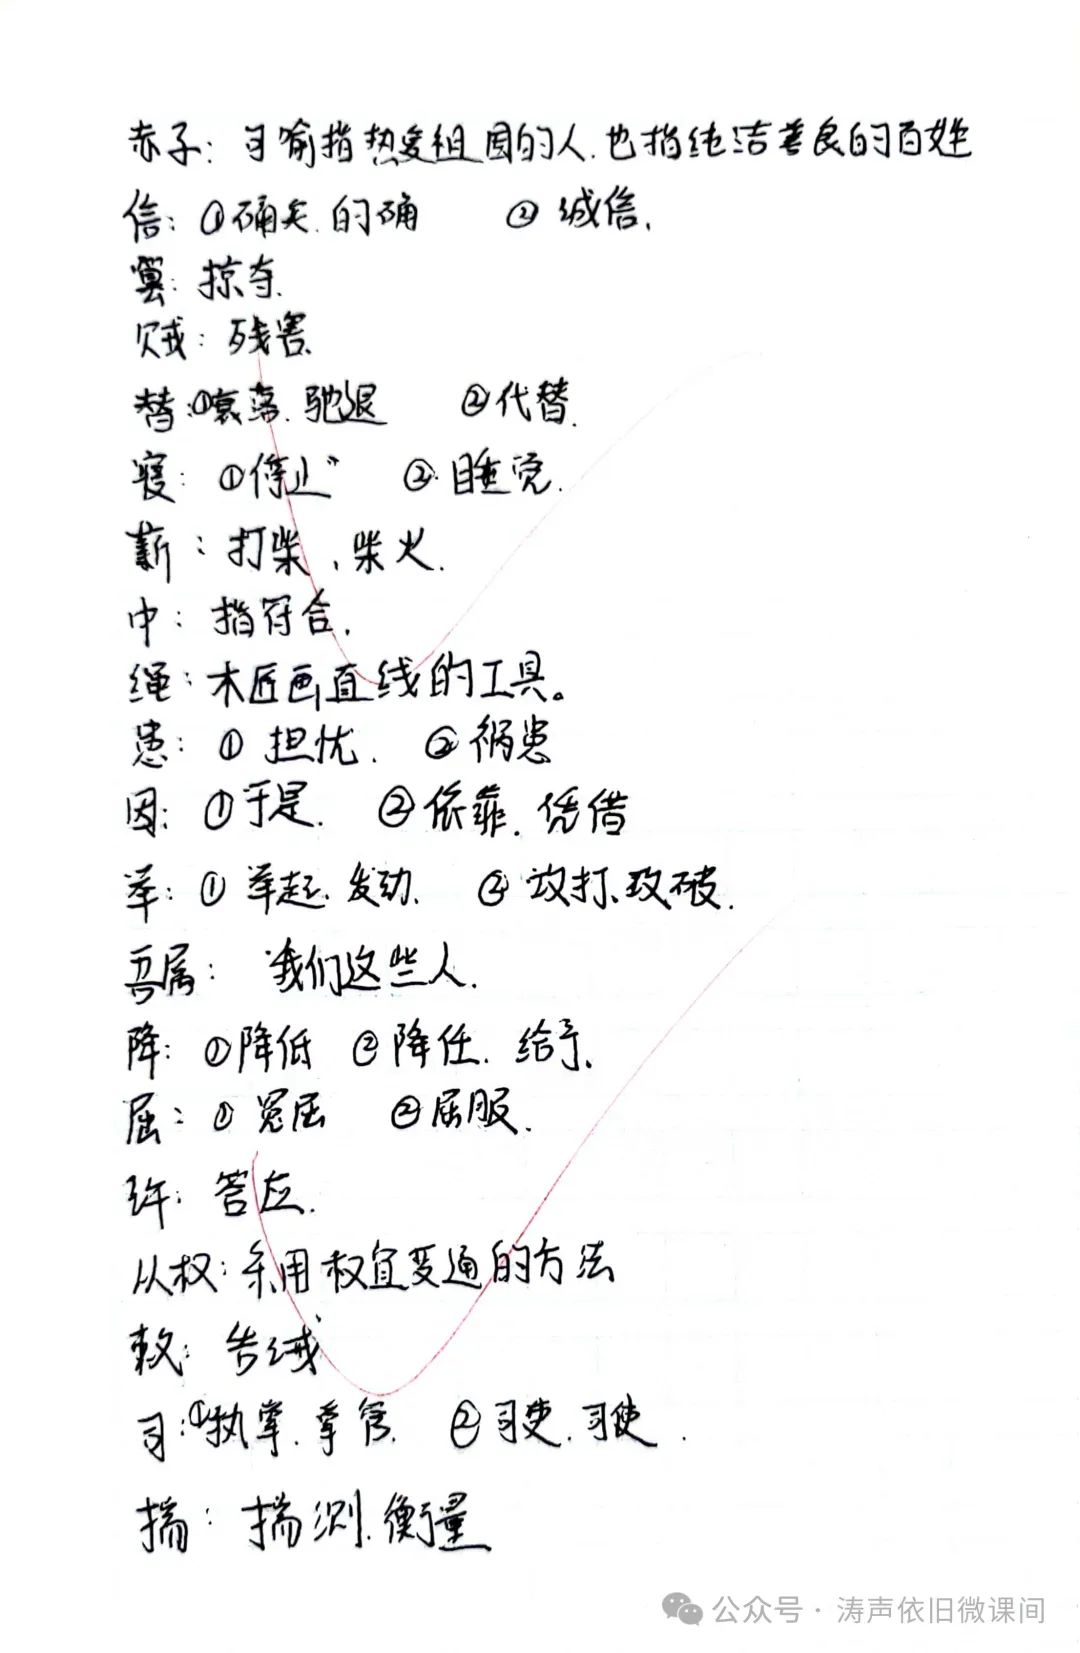 赤子：可喻指热爱祖国的人.也指纯洁善良的百姓
信：①确实.的确 ②诚信.
篡：掠夺.
贼：残害.
替：①衰落.驰退 ②代替.
寝：①停止 ②睡觉.
薪：打柴、柴火.
中：指符合.
绳：木匠画直线的工具。
患：①担忧. ②祸患
因：①于是. ②依靠.凭借
举：①举起.发动. ②攻打、攻破.
吾属：我们这些人.
降：①降低 ②降任.给予.
屈：①冤屈 ②屈服.
许：答应.
从权：采用权宜变通的方法
敕：告诫
司：①执掌.掌管. ②
揣：揣测.衡量
公众号·涛声依旧微课间